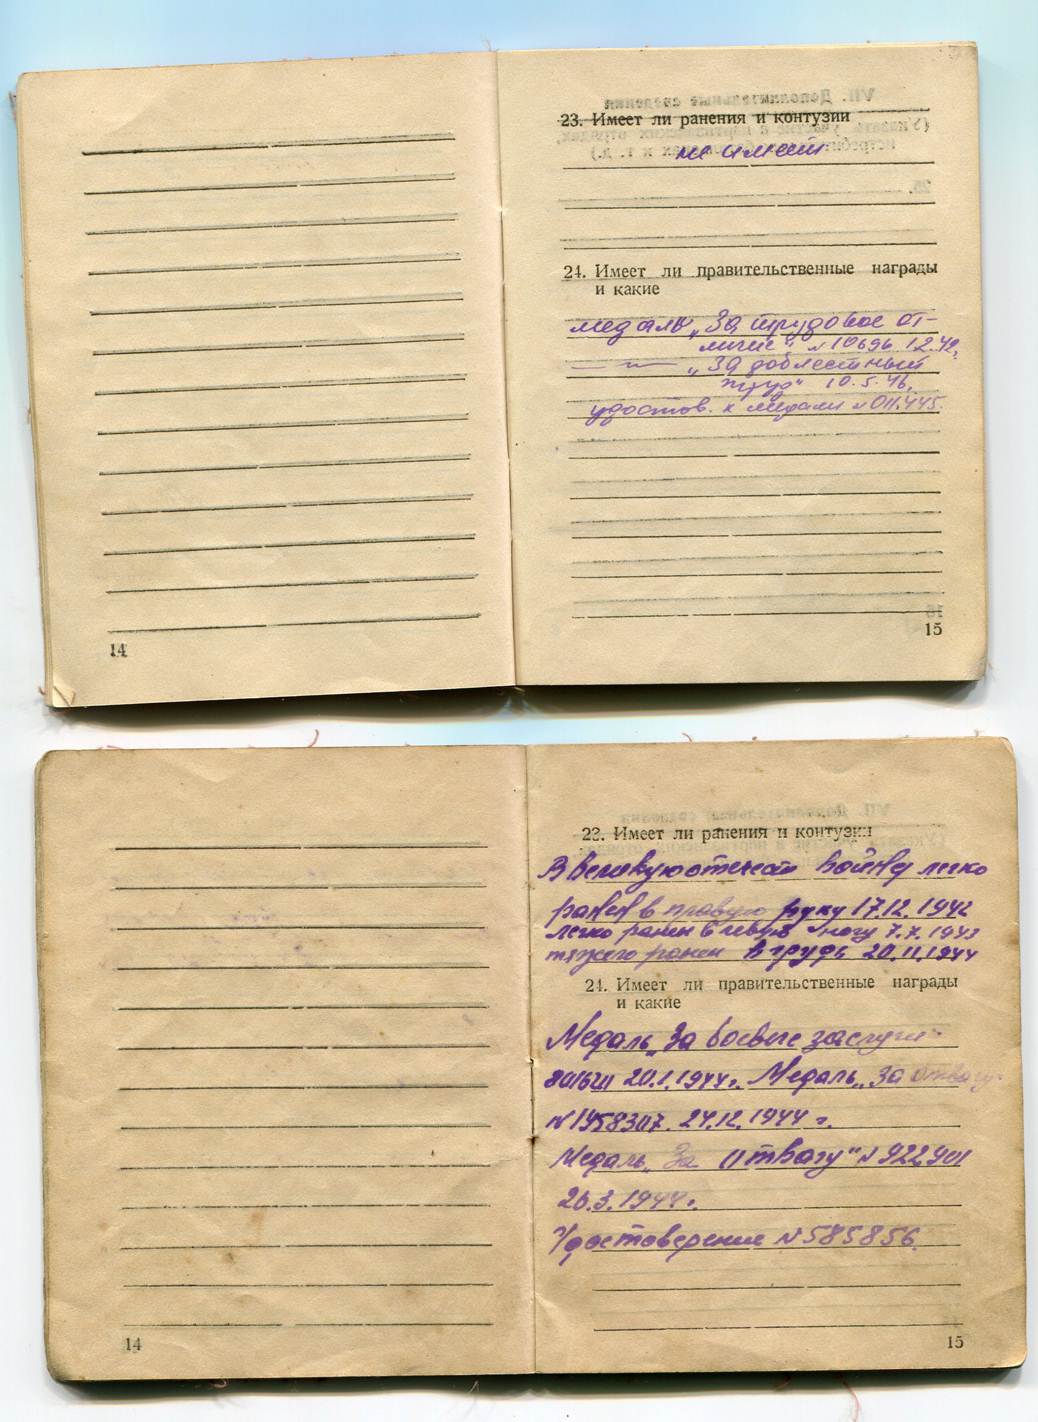 23. Имеет ли ранения и контузии
не имеет
24. Имеет ли правительственные награды
и какие
медаль „За трудовое от-
личие" № 10696 12.42.
— „ — „За доблестный
труд" 10.5.46.
удостов. к медали № 011.445.
14
15
23. Имеет ли ранения и контузии
В войну легко
ранен в правую руку 17.12.1942
легко ранен в левую ногу 7.7.1943
тяжело ранен в грудь 20.11.1944
24. Имеет ли правительственные награды
и какие
Медаль „За боевые заслуги"
20.1.1944 г. Медаль „За отвагу"
24.12.1944 г.
Медаль „За отвагу" № 922901
26.3.1944 г.
Удостоверение № 585856.
14
15